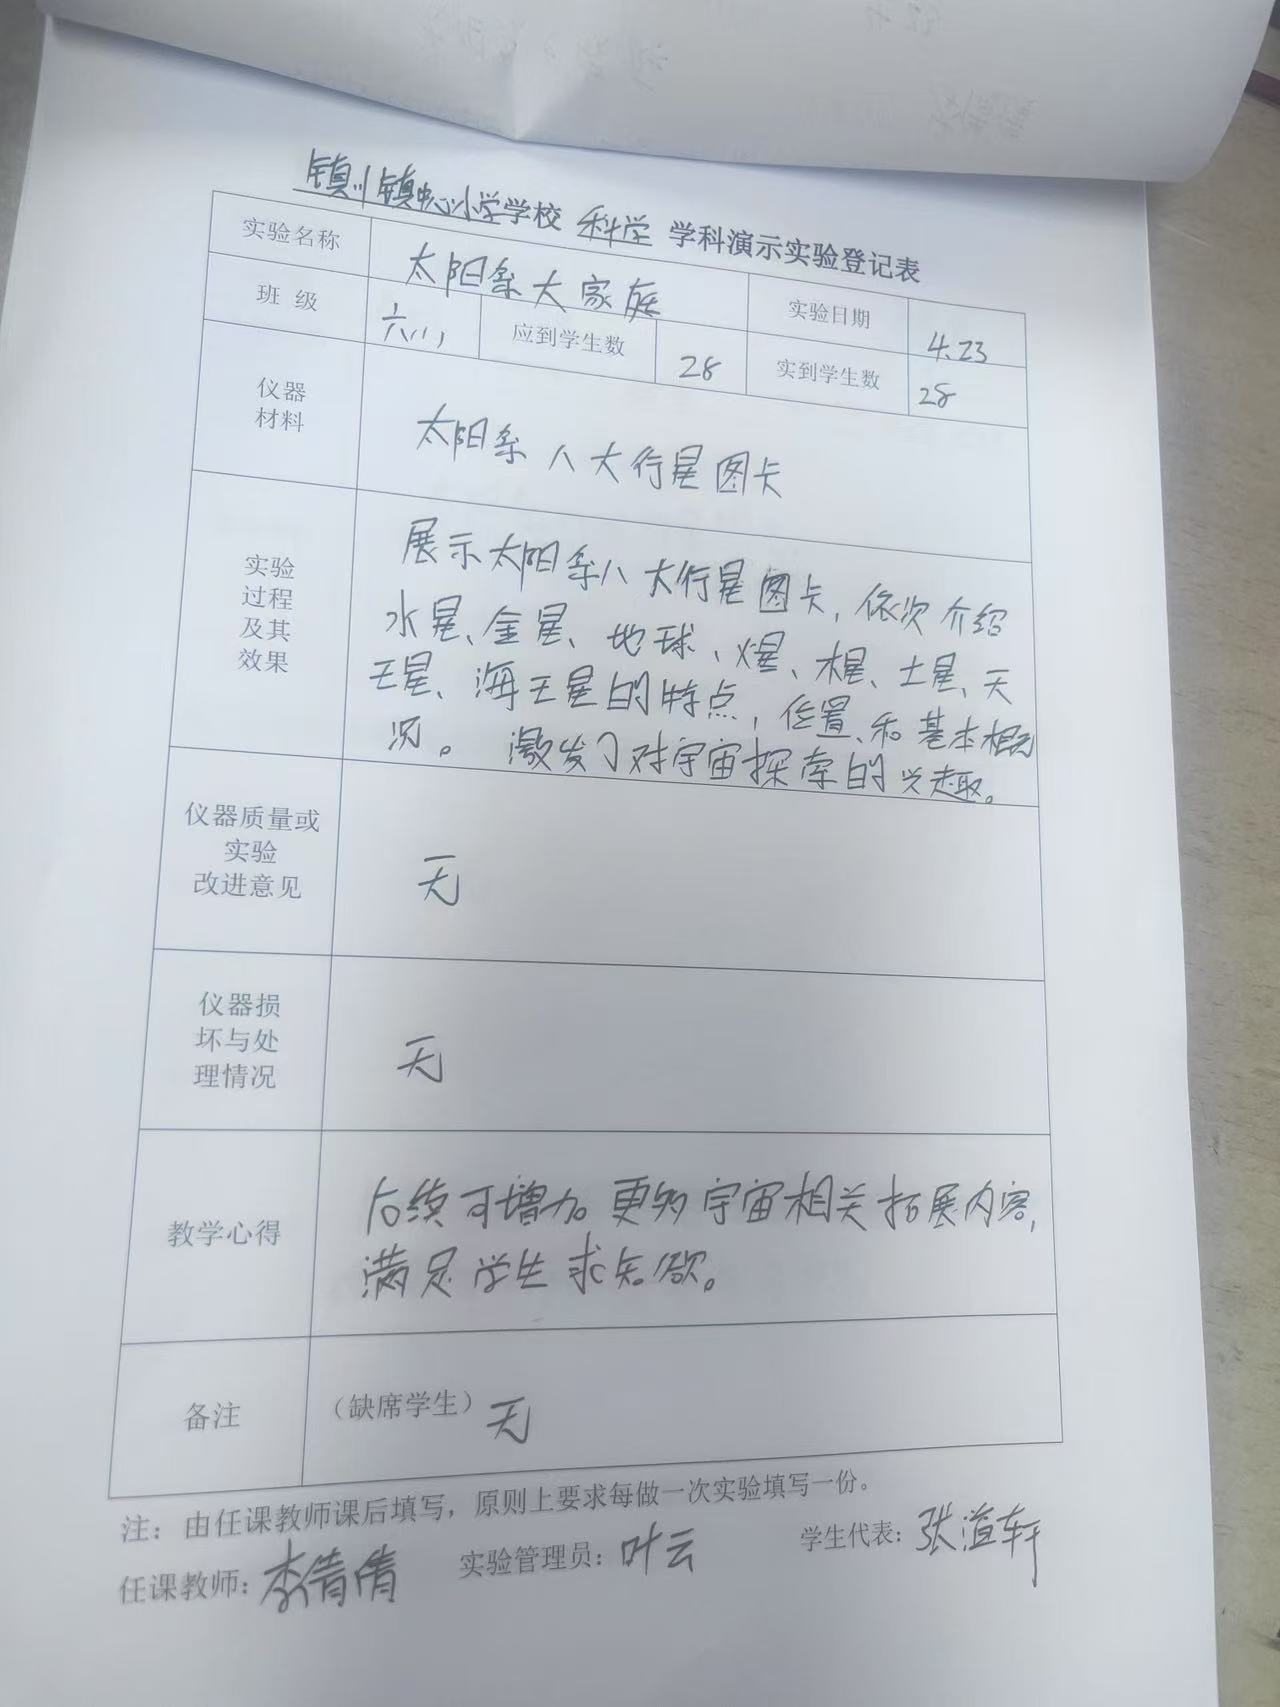 镇川镇中心小学学校 科学 学科演示实验登记表
实验名称 太阳系大家庭 实验日期 4.23
班 级 六(1) 应到学生数 28 实到学生数 28
仪器
材料
太阳系八大行星图卡
实验
过程
及其
效果
展示太阳系八大行星图卡,依次介绍
水星、金星、地球、火星、木星、土星、天
王星、海王星的特点,位置、和基本概
况。 激发了对宇宙探索的兴趣。
仪器质量或
实验
改进意见
无
仪器损
坏与处
理情况
无
教学心得
后续可增加更多宇宙相关拓展内容,
满足学生求知欲。
备注 (缺席学生) 无
注：由任课教师课后填写，原则上要求每做一次实验填写一份。
任课教师: 李倩倩 实验管理员: 叶云 学生代表: 张